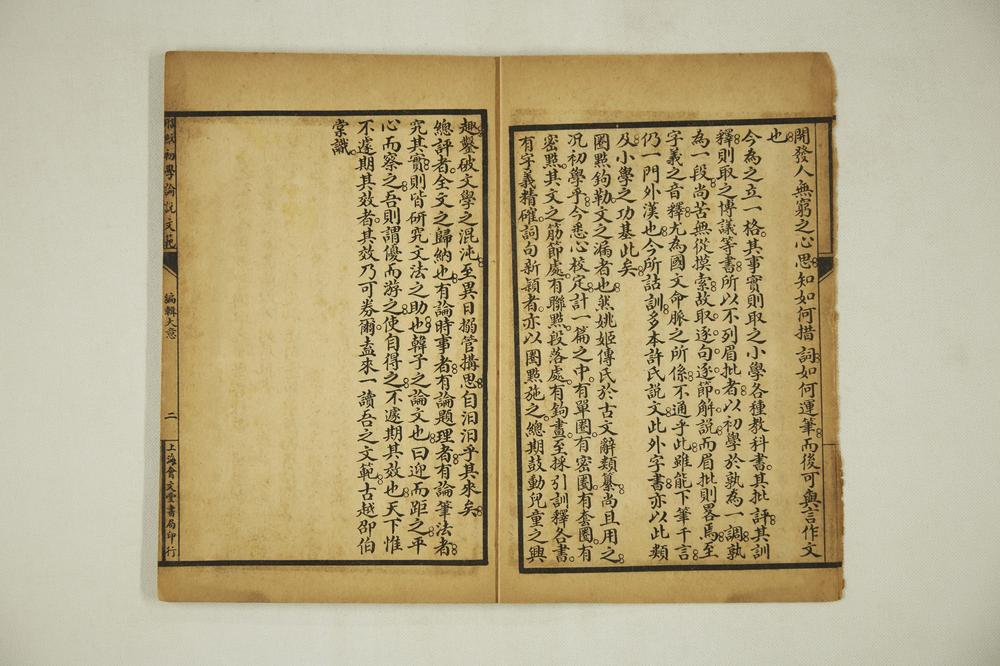 開發人無窮之心思知如何措詞如何運筆而後可與言作文
也
今為之立一格其事實則取之小學各種教科書其批評其訓
釋則取之博議等書所以不列眉批者以初學於孰為一調孰
為一段尚苦無從摸索故取逐句逐節解說而眉批則畧焉至
字義之音釋尤為國文命脈之所係不通乎此雖能下筆千言
仍一門外漢也今所詁訓多本許氏說文此外字書亦以此類
及小學之功基此矣
圈點鉤勒文之漏者也然姚姬傳氏於古文辭類纂尚且用之
况初學乎今悉心校定計一篇之中有單圈有密圈有套圈有
密點其文之筋節處有聯點段落處有鉤畫至採引訓釋各書
有字義精確詞句新穎者亦以圈點施之總期鼓動兒童之興
趣鑿破文學之混沌至異日搦管搆思自汩汩乎其來矣
總評者全文之歸納也有論時事者有論題理者有論筆法者
究其實則皆研究文法之助也韓子之論文也曰迎而距之平
心而察之吾則謂優而游之使自得之不遽期其效也天下惟
不遽期其效者其效乃可券爾盍來一讀吾之文範古越邵伯
棠識
初學論說文範
編輯大意
二
上海會文堂書局印行